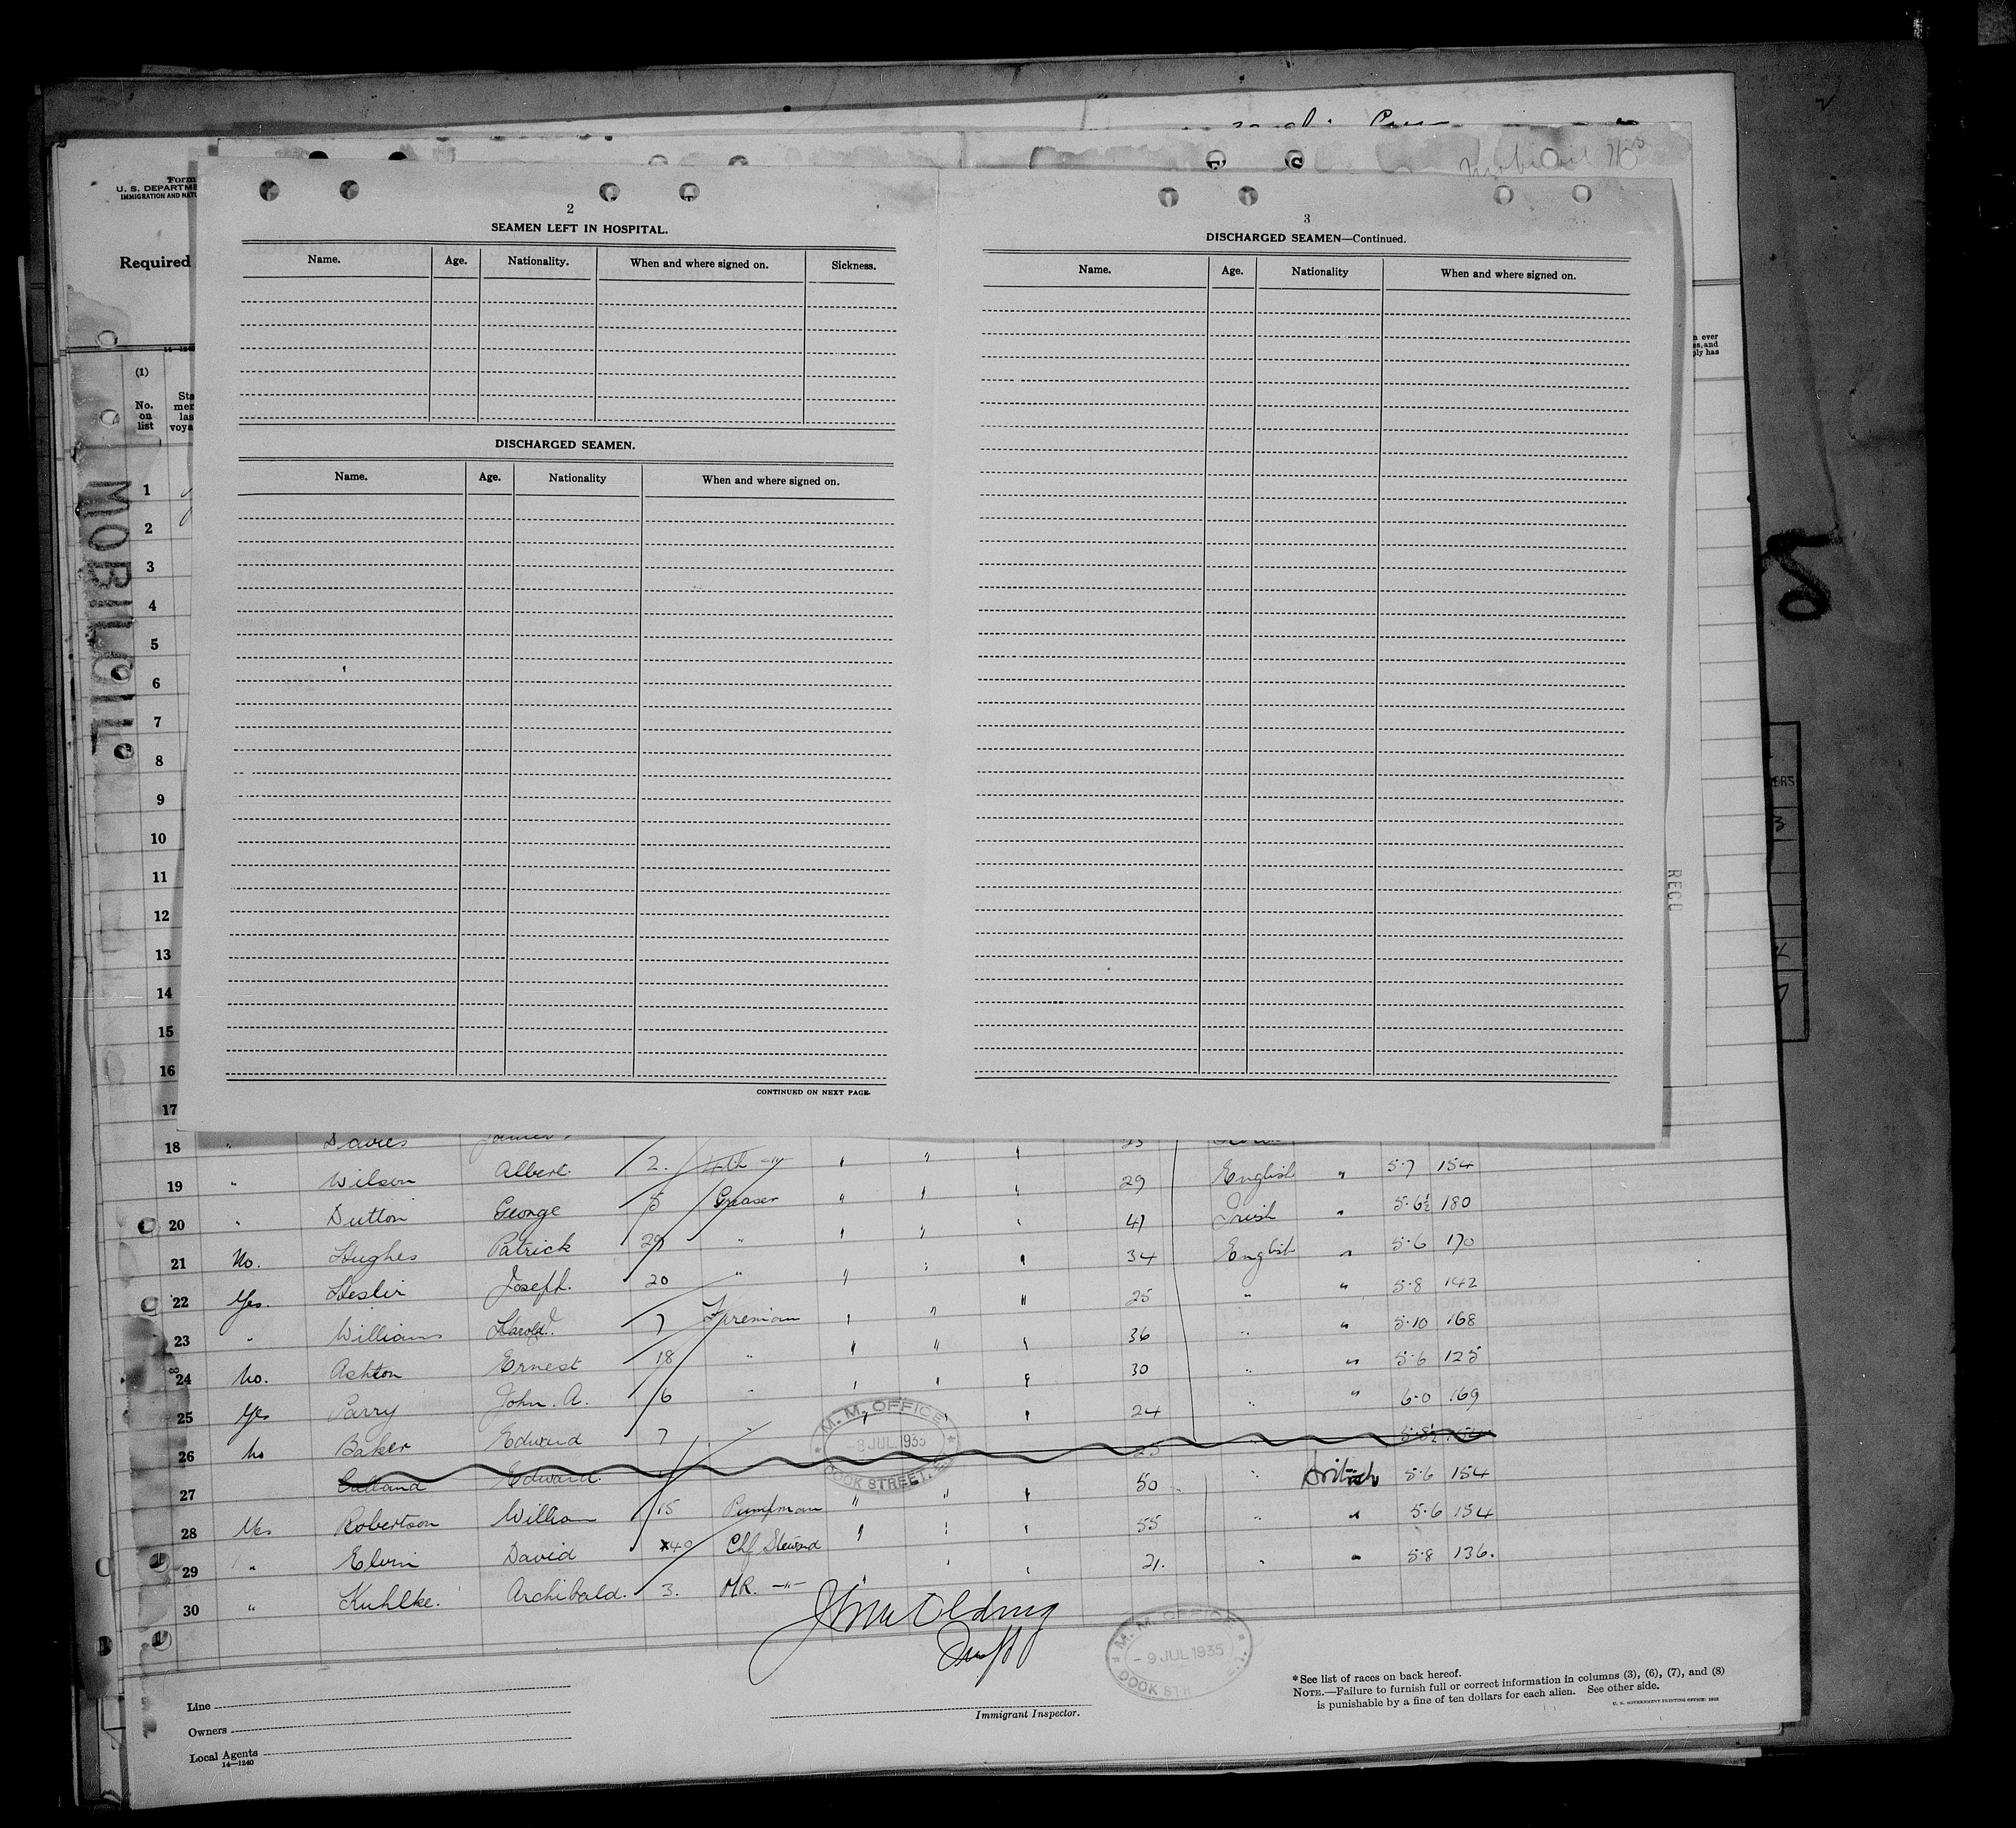 Mobiloil 7/3
Form
U. S. DEPARTME
IMMIGRATION AND NATU
Required
14—1240
(1)
No.
on
list
Sta
mer
las
voya
MOBILOIL
2
SEAMEN LEFT IN HOSPITAL.
Name. Age. Nationality. When and where signed on. Sickness.
DISCHARGED SEAMEN.
Name. Age. Nationality When and where signed on.
CONTINUED ON NEXT PAGE.
3
DISCHARGED SEAMEN—Continued.
Name. Age. Nationality When and where signed on.
n ever
es, and
ply has
RECO
ERS
3
1
2
3
4
5
6
7
8
9
10
11
12
13
14
15
16
17
18 " Davies James
19 " Wilson Albert 2. 4th —"— " " " 29 English " 5·7 154
20 " Dutton George 5 Greaser " " " 41 Irish " 5·6½ 180
21 No. Hughes Patrick 29 " " " " 34 English " 5·6 170
22 Yes. Heslir Joseph. 20 " " " " 25 " " 5·8 142
23 " Williams Harold. 7 Fireman " " " 36 " " 5·10 168
24 No. Ashton Ernest 18 " " " " 30 " " 5·6 125
25 Yes Parry John. A. 6 " " " " 24 " " 6·0 169
26 No Baker Edward 7 " 25 5·8½
27 Calland Edward. 50 " British 5·6 154
28 Yes Robertson William 15 Pumpman " " " 55 " " 5·6 154
29 " Elvin David x40 Chf Steward " " " 21. " " 5·8 136.
30 " Kuhlke. Archibald. 3. M.R. —"—
M. M. OFFICE
-8 JUL 1935
DOCK STREET, E.
M. M. OFFICE
- 9 JUL 1935
DOCK STR E.1.
Line
Owners
Local Agents
14—1240
Immigrant Inspector.
* See list of races on back hereof.
NOTE.—Failure to furnish full or correct information in columns (3), (6), (7), and (8)
is punishable by a fine of ten dollars for each alien. See other side.
U. S. GOVERNMENT PRINTING OFFICE: 1933